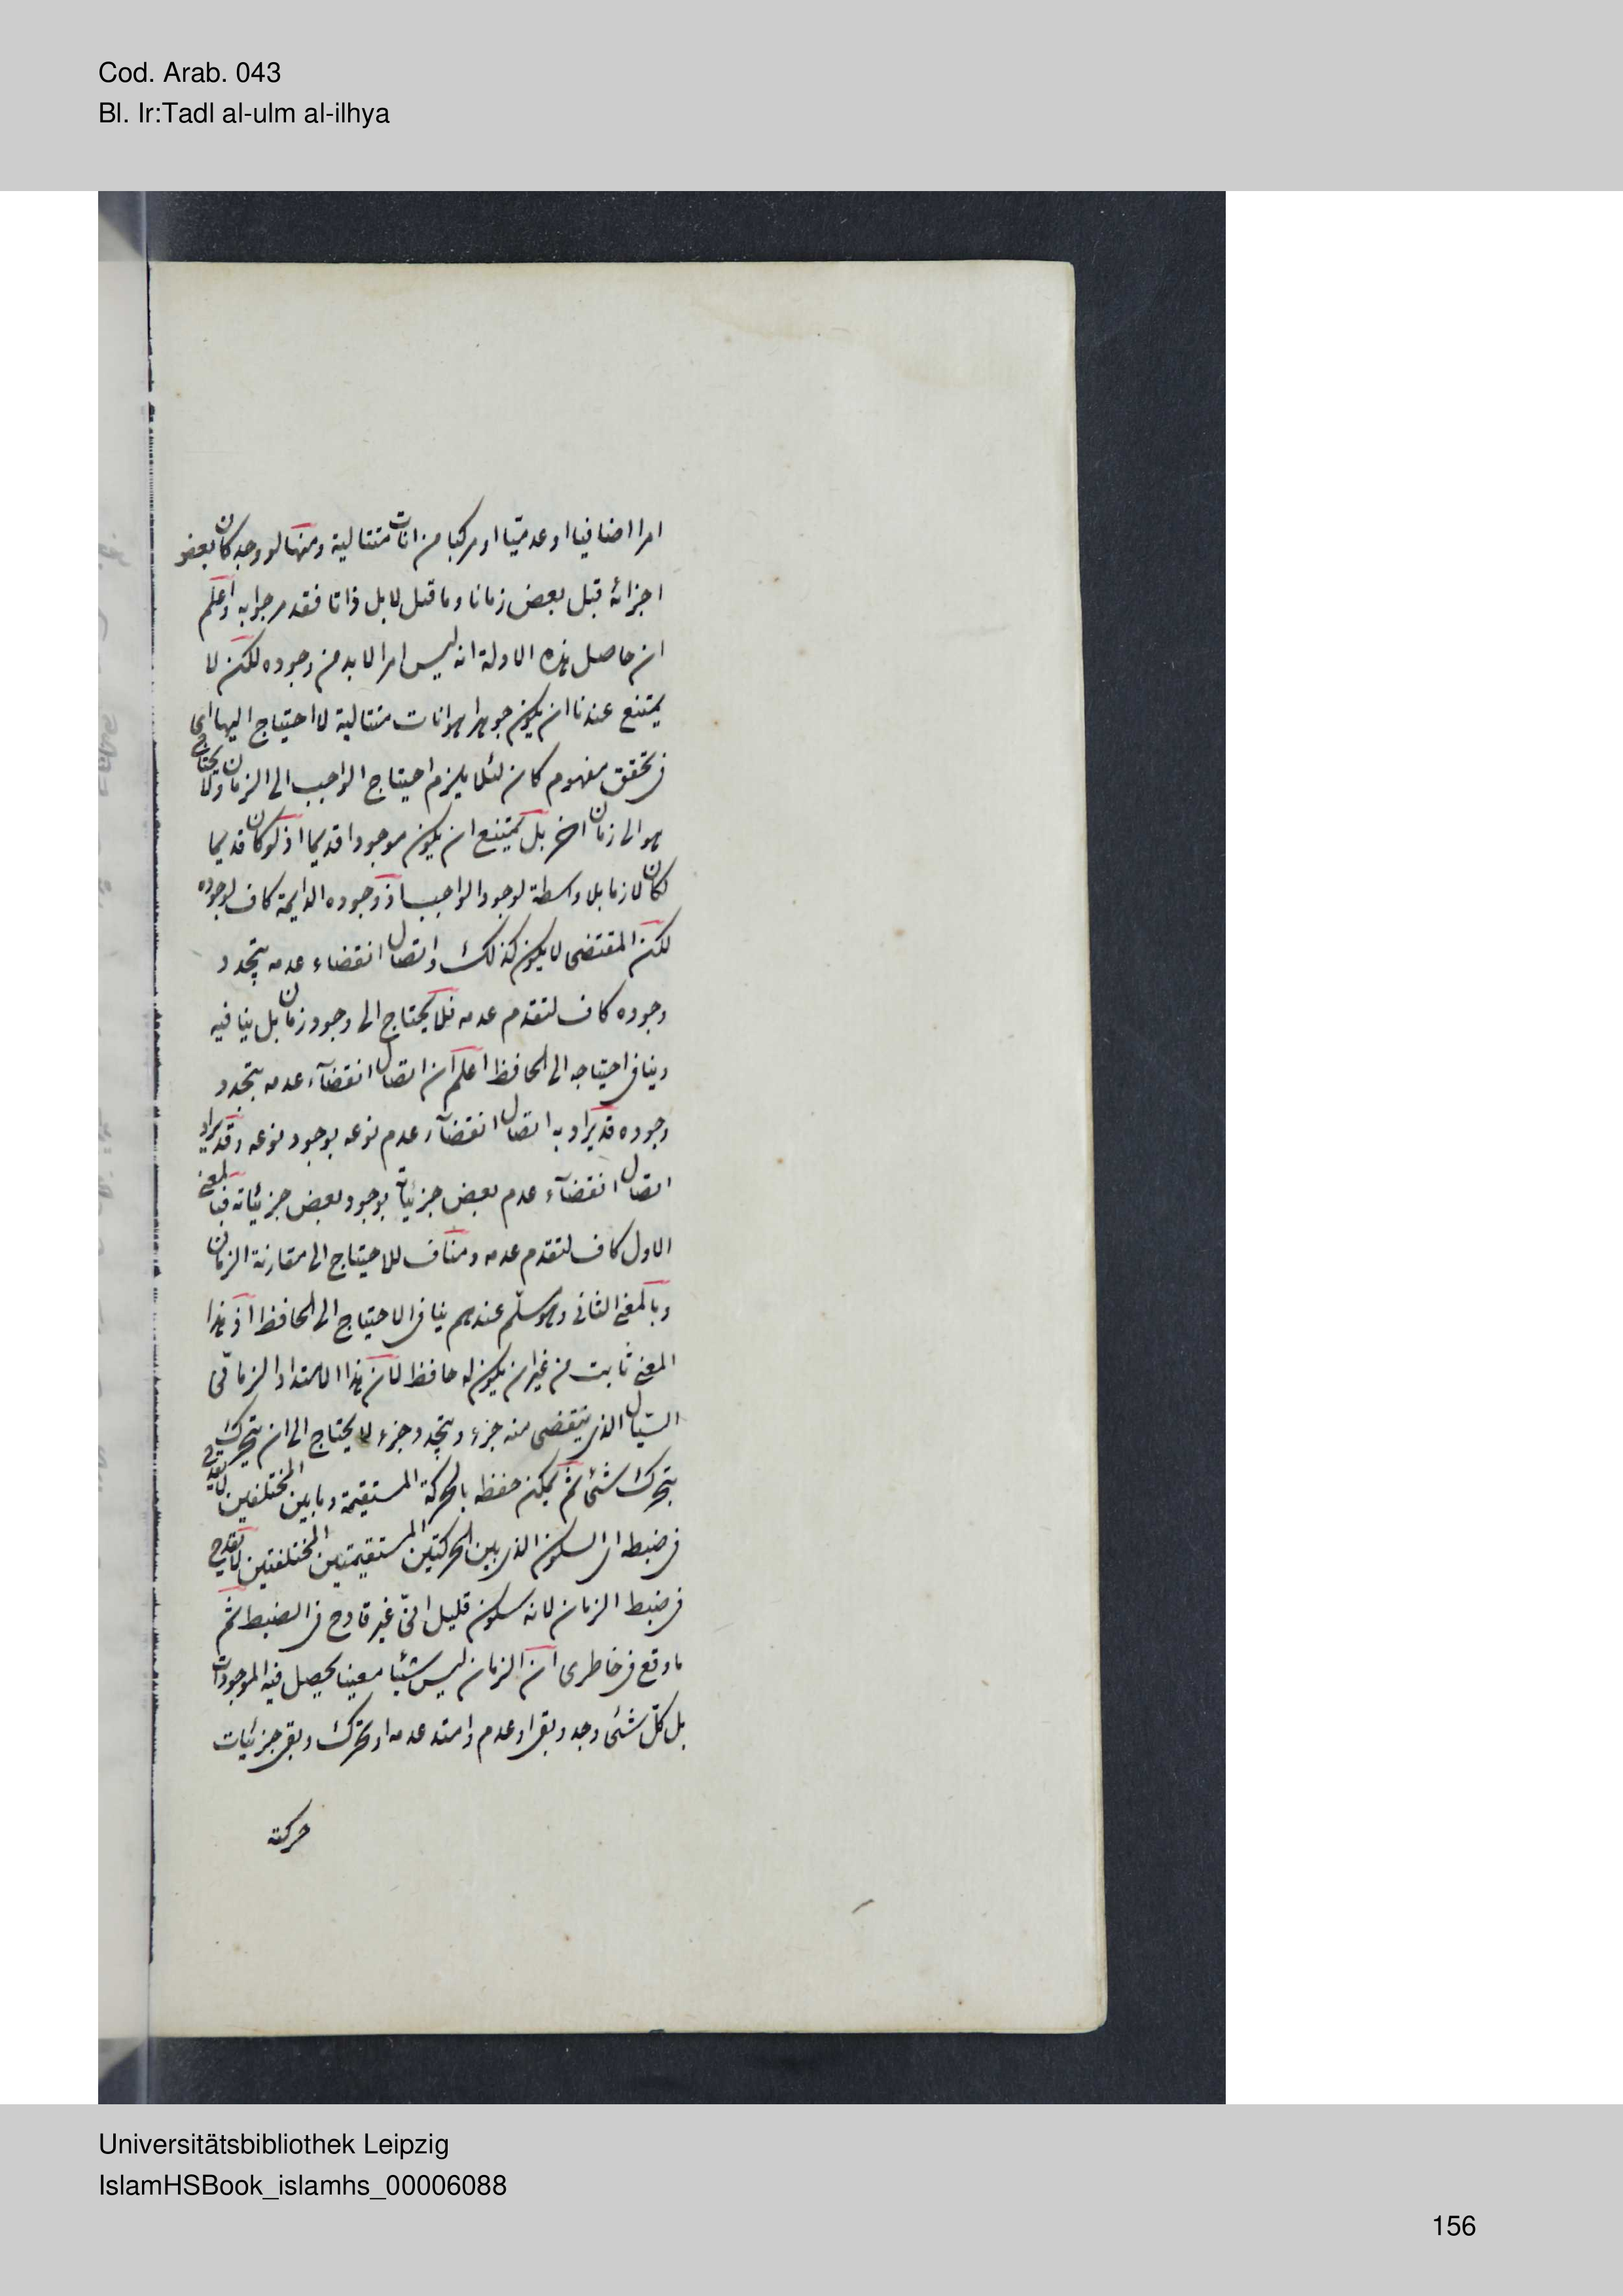 Cod. Arab. 043
Bl. Ir:Tadl al-ulm al-ilhya
امرا اضافيا او عدميّا او مركبا من انات متتالية ومنها لو وجد كان بعض
اجزائه قبل بعض زمانا وما قبل لا بل ذاتا فقد مر جوابه واعلم
ان حاصل هذه الادلة انه ليس امرا لا بد من وجوده لكن لا
يمتنع عندنا ان يكون جوهرا هو انات متتالية لا احتياج اليها اى
فى تحقق مفهوم كان لئلا يلزم احتياج الواجب الى الزمان ولا يحتاج
هو الى زمان اخر بل يمتنع ان يكون موجودا قديما اذ لو كان قديما
لكان لازما بلا واسطة لوجود الواجب اذ وجوده الدايمة كاف لوجوده
لكن المقتضى لا يكون كذلك واتصال انقضاء عدمه بتجدد
وجوده كاف لتقدم عدمه فلا يحتاج الى وجود زمان بل ينافيه
وينافى احتياجه الى الحافظ اعلم ان اتصال انقضآء عدمه بتجدد
وجوده قد يراد به اتصال انقضآء عدم نوعه بوجود نوعه وقد يراد
اتصال انقضآء عدم بعض جزئياته بوجود بعض جزئياته فبالمعنى
الاول كاف لتقدم عدمه ومناف للاحتياج الى مقارنة الزمان
وبالمعنى الثانى وهو مسلّم عندهم ينافى الاحتياج الى الحافظ اذ هذا
المعنى ثابت من غير ان يكون له حافظ لان هذا الامتداد الزمانى
السيّال الذى ينقضى منه جزء ويتجدد جزء لا يحتاج الى ان يتحرك
بتحرك شئ ثم يمكن حفظه بالحركة المستقيمة وما بين المختلفين لا يقدح
فى ضبطه اى السكون الذى بين الحركتين المستقيمتين المختلفتين لا يقدح
فى ضبط الزمان لانه سكون قليل انىّ غير قادح فى الضبط ثم
ما وقع فى خاطرى ان الزمان ليس شيئا معينا يحصل فيه الموجودات
بل كلّ شئ وجد وبقى او عدم وامتد عدمه او تحرك وبقى جزئيات
حركته
Universitätsbibliothek Leipzig
IslamHSBook_islamhs_00006088
156